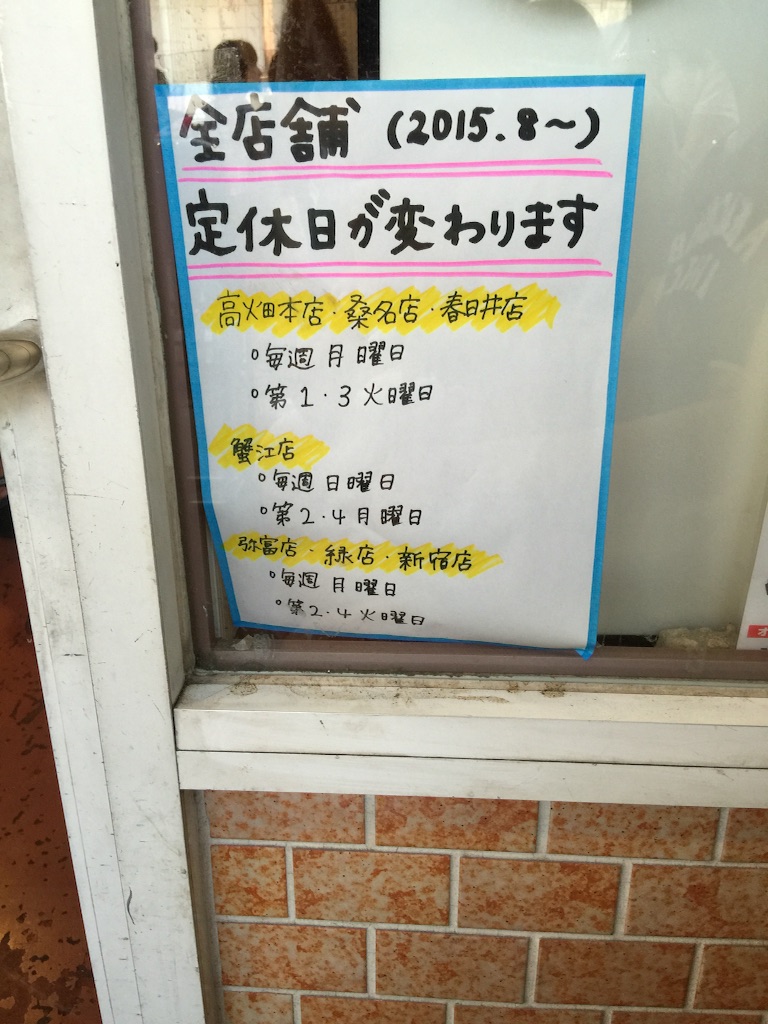 全店舗 (2015.8～)
定休日が変わります
高畑本店・桑名店・春日井店
○毎週 月曜日
○第1・3 火曜日
蟹江店
○毎週 日曜日
○第2・4 月曜日
弥富店・緑店・新宿店
○毎週 月曜日
○第2・4 火曜日